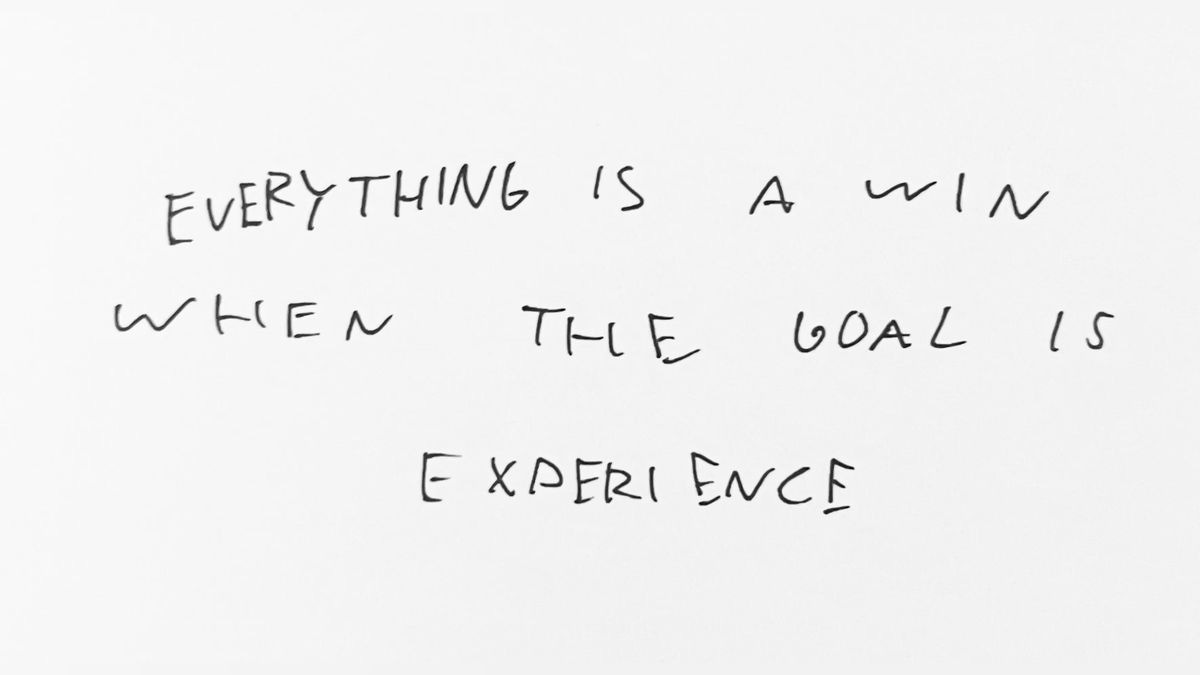 EVERYTHING IS A WIN
WHEN THE GOAL IS
EXPERIENCE